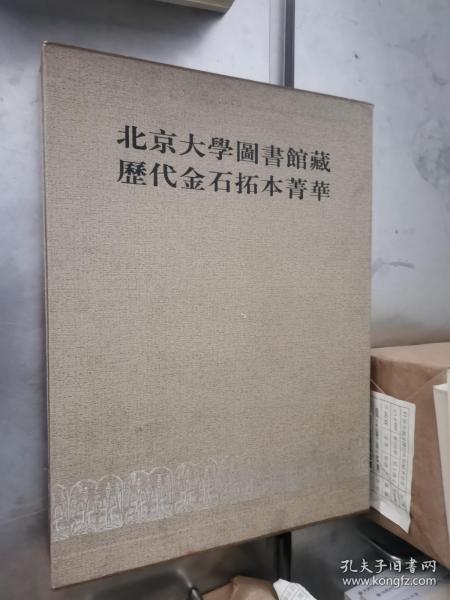 北京大學圖書館藏
歷代金石拓本菁華
孔夫子旧书网
www.kongfz.com